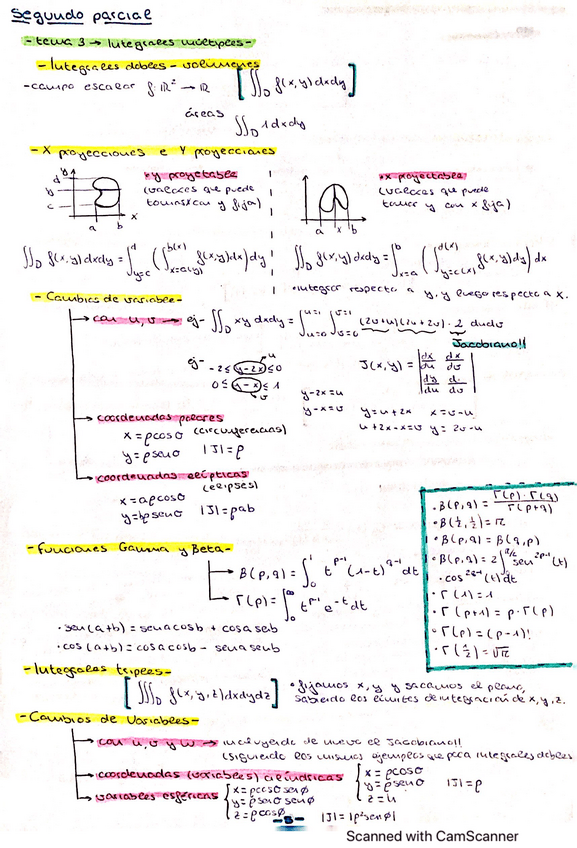 Segundo parcial
- tema 3 → Integrales múltiples -
- Integrales dobles - volúmenes
- campo escalar f: ℝ² → ℝ [∬_D f(x,y)dxdy]
áreas ∬_D 1dxdy
- X proyecciones e Y proyecciones
• y proyectable
(valores que puede
tomar x an y fija)
d
b
c
a b x
y
• x proyectable
(valores que puede
tomar y con x fija)
a x b
∬_D f(x,y)dxdy = ∫_{y=c}^{d} (∫_{x=a(y)}^{b(x)} f(x,y)dx) dy
∬_D f(x,y)dxdy = ∫_{x=a}^{b} (∫_{y=c(x)}^{d(x)} f(x,y)dy) dx
• integrar respecto a y, y luego respecto a x.
- Cambios de variable -
→ con u, v → ej- ∬_D xy dxdy = ∫_{u=0}^{u=1} ∫_{v=0}^{v=1} (2v+u)(2u+2v) · 2 dudv
Jacobiano!!
ej- -2 ≤ (y-2x) ≤ 0 → u
0 ≤ (y-x) ≤ 1 → v
J(x,y) = | dx/du dx/dv |
| dy/du d./dv |
y-2x=u
y-x=v y=u+2x x=v-u
u+2x-x=v y=2v-u
→ coordenadas polares
x = ρcosσ (circunferencias)
y = ρsenσ |J| = ρ
→ coordenadas elípticas
x = aρcosσ (elipses)
y = bρsenσ |J| = ρab
- Funciones Gamma y Beta -
→ β(p,q) = ∫_0^1 t^{p-1} (1-t)^{q-1} dt
→ Γ(p) = ∫_0^∞ t^{p-1} e^{-t} dt
• sen(a+b) = sena cosb + cosa senb
• cos(a+b) = cosa cosb - sena senb
• β(p,q) = Γ(p)·Γ(q) / Γ(p+q)
• β(½,½) = π
• β(p,q) = β(q,p)
• β(p,q) = 2∫_0^{π/2} sen^{2p-1}(t)
· cos^{2q-1}(t) dt
• Γ(1) = 1
• Γ(p+1) = p·Γ(p)
• Γ(p) = (p-1)!
• Γ(½) = √π
- Integrales triples -
[∭_D f(x,y,z)dxdydz] • fijamos x, y y sacamos el plano,
sabiendo los límites de integración de x, y, z.
- Cambios de Variables -
→ con u, v y w → incluyendo de nuevo el Jacobiano!!
(siguiendo los mismos ejemplos que para integrales dobles
→ coordenadas (variables) cilíndricas { x = ρcosσ
y = ρsenσ |J| = ρ
z = u
→ variables esféricas { x = ρcosσ senφ
y = ρsenσ senφ
z = ρcosφ |J| = |ρ²senφ|
- 5 -
Scanned with CamScanner